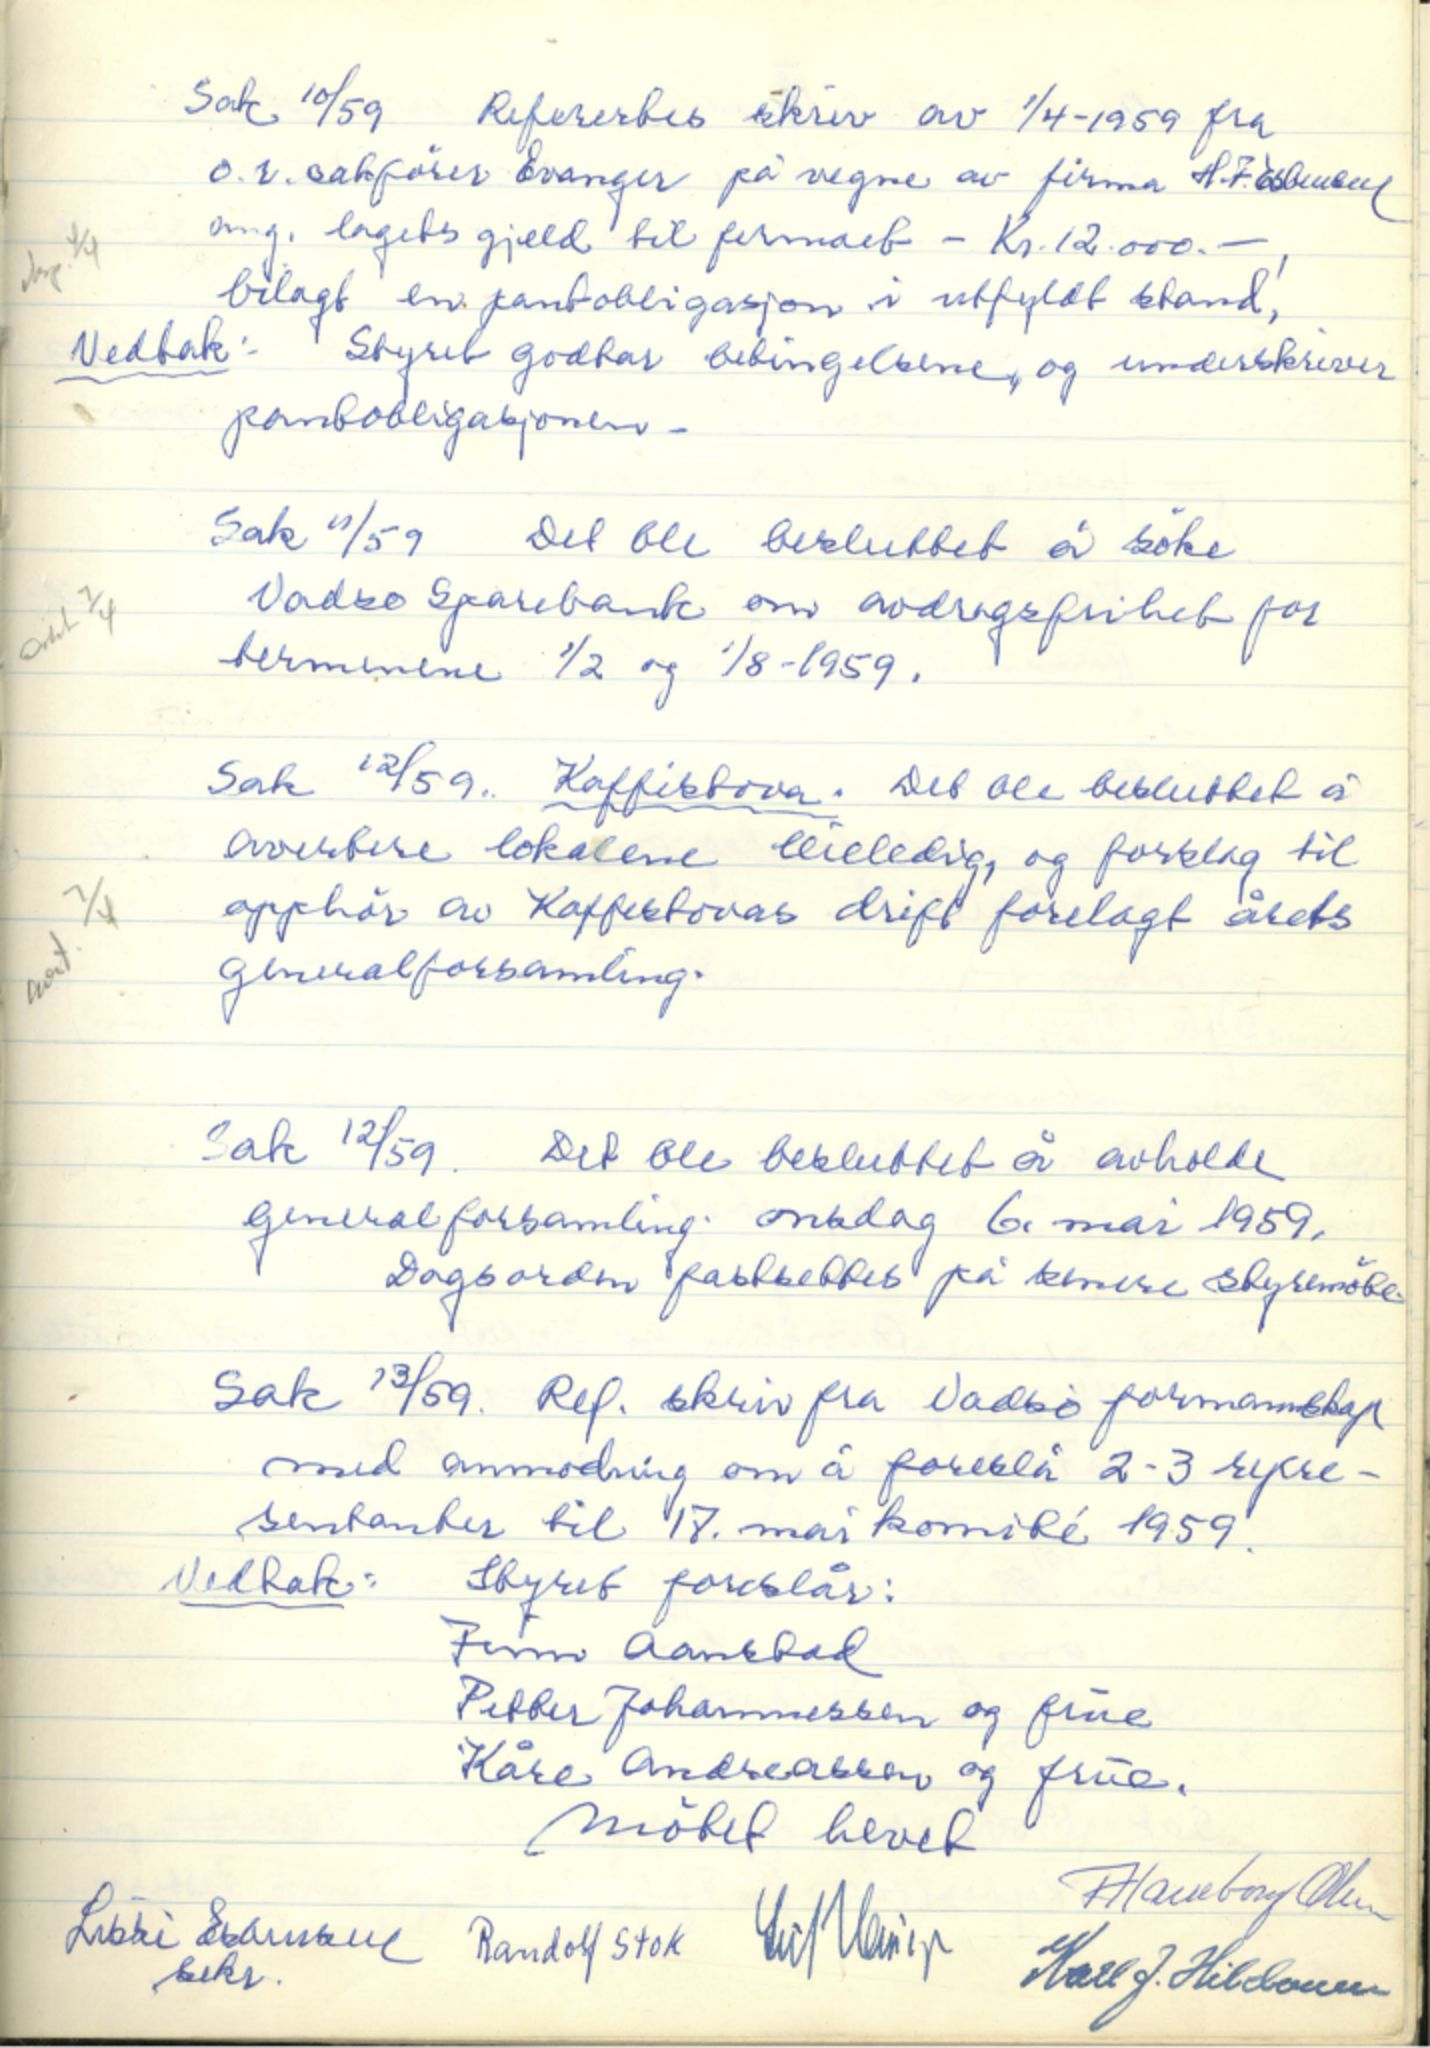 Sak 10/59 Referertes skriv av 1/4-1959 fra
o.r. sakfører Evanger på vegne av firma H.F. Esbensen
ang. lagets gjeld til firmaet - Kr. 12.000.-,
bilagt en pantobligasjon i utfyldt stand,
Vedtak:- Styret godtar betingelsene, og underskriver
pantobligasjonen -
Sak 11/59 Det ble besluttet å söke
Vadsø Sparebank om avdragsfrihet for
terminene 1/2 og 1/8-1959.
7/4
Sak 12/59. Kaffistova. Det ble besluttet å
avertere lokalene leieledig, og forslag til
opphör av Kaffistovas drift forelagt årets
generalforsamling.
avt. 7/4
Sak 12/59. Det ble besluttet å avholde
generalforsamling onsdag 6. mai 1959.
Dagsorden fastsettes på senere styremöte.
Sak 13/59. Ref. skriv fra Vadsö formannskap
med anmodning om å foreslå 2-3 repre-
sentanter til 17. mai komité 1959.
Vedtak: Styret foreslår:
Finn Aanstad
Petter Johannessen og frue
Kåre Andreassen og frue.
Mötet hevet
Lissi Esbensen Randolf Stok
sekr.